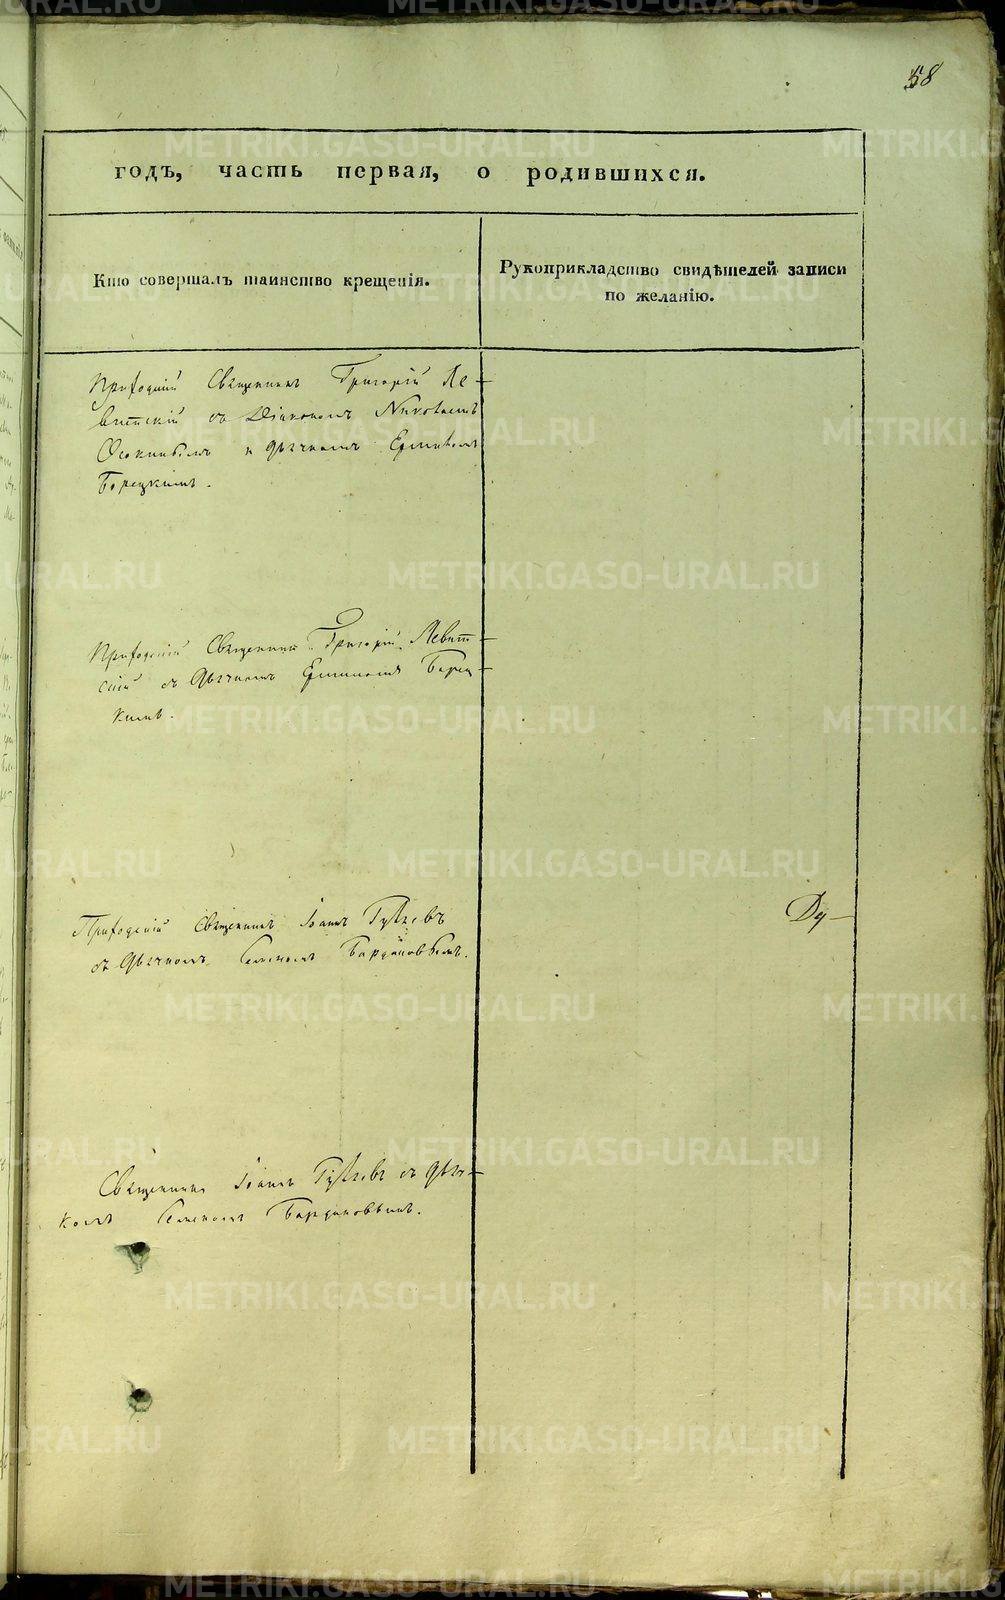 58
годъ, часть первая, о родившихся.
Кто совершалъ таинство крещенія.
Рукоприкладство свидѣтелей записи
по желанію.
Приходскій Священникъ Григорій Ле-
витскій съ Діакономъ Николаемъ
Осокинымъ и дьячкомъ
Борецкимъ.
Приходскій Священникъ Григорій Левит-
скій съ Дьячкомъ Борец-
кимъ.
Приходскій Священникъ Іоаннъ
съ Дьячкомъ
Ду-
Священникъ Іоаннъ съ дьяч-
комъ
METRIKI.GASO-URAL.RU